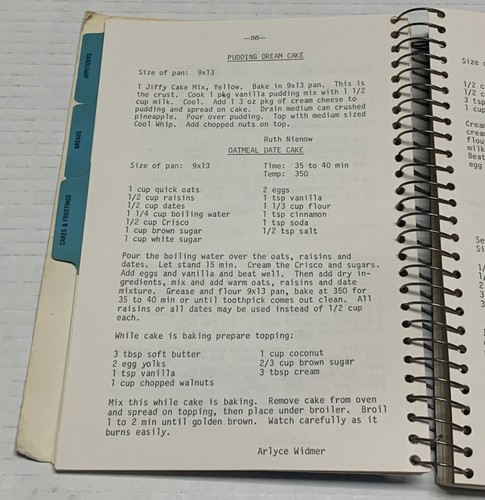 —36—
PUDDING DREAM CAKE
Size of pan: 9x13
1 Jiffy Cake Mix, Yellow. Bake in 9x13 pan. This is
the crust. Cook 1 pkg vanilla pudding mix with 1 1/2
cup milk. Cool. Add 1 3 oz pkg of cream cheese to
pudding and spread on cake. Drain medium can crushed
pineapple. Pour over pudding. Top with medium sized
Cool Whip. Add chopped nuts on top.
Ruth Nienow
OATMEAL DATE CAKE
Size of pan: 9x13 Time: 35 to 40 min
Temp: 350
1 cup quick oats 2 eggs
1/2 cup raisins 1 tsp vanilla
1/2 cup dates 1 1/3 cup flour
1 1/4 cup boiling water 1 tsp cinnamon
1/2 cup Crisco 1 tsp soda
1 cup brown sugar 1/2 tsp salt
1 cup white sugar
Pour the boiling water over the oats, raisins and
dates. Let stand 15 min. Cream the Crisco and sugars.
Add eggs and vanilla and beat well. Then add dry in-
gredients, mix and add warm oats, raisins and date
mixture. Grease and flour 9x13 pan, bake at 350 for
35 to 40 min or until toothpick comes out clean. All
raisins or all dates may be used instead of 1/2 cup
each.
While cake is baking prepare topping:
3 tbsp soft butter 1 cup coconut
2 egg yolks 2/3 cup brown sugar
1 tsp vanilla 3 tbsp cream
1 cup chopped walnuts
Mix this while cake is baking. Remove cake from oven
and spread on topping, then place under broiler. Broil
1 to 2 min until golden brown. Watch carefully as it
burns easily.
Arlyce Widmer
APPETIZERS
BREADS
CAKES & FROSTINGS
Size
1/2 c
1/2 c
3 tsp
1 cup
Cream
crea
flou
milk
Beat
egg